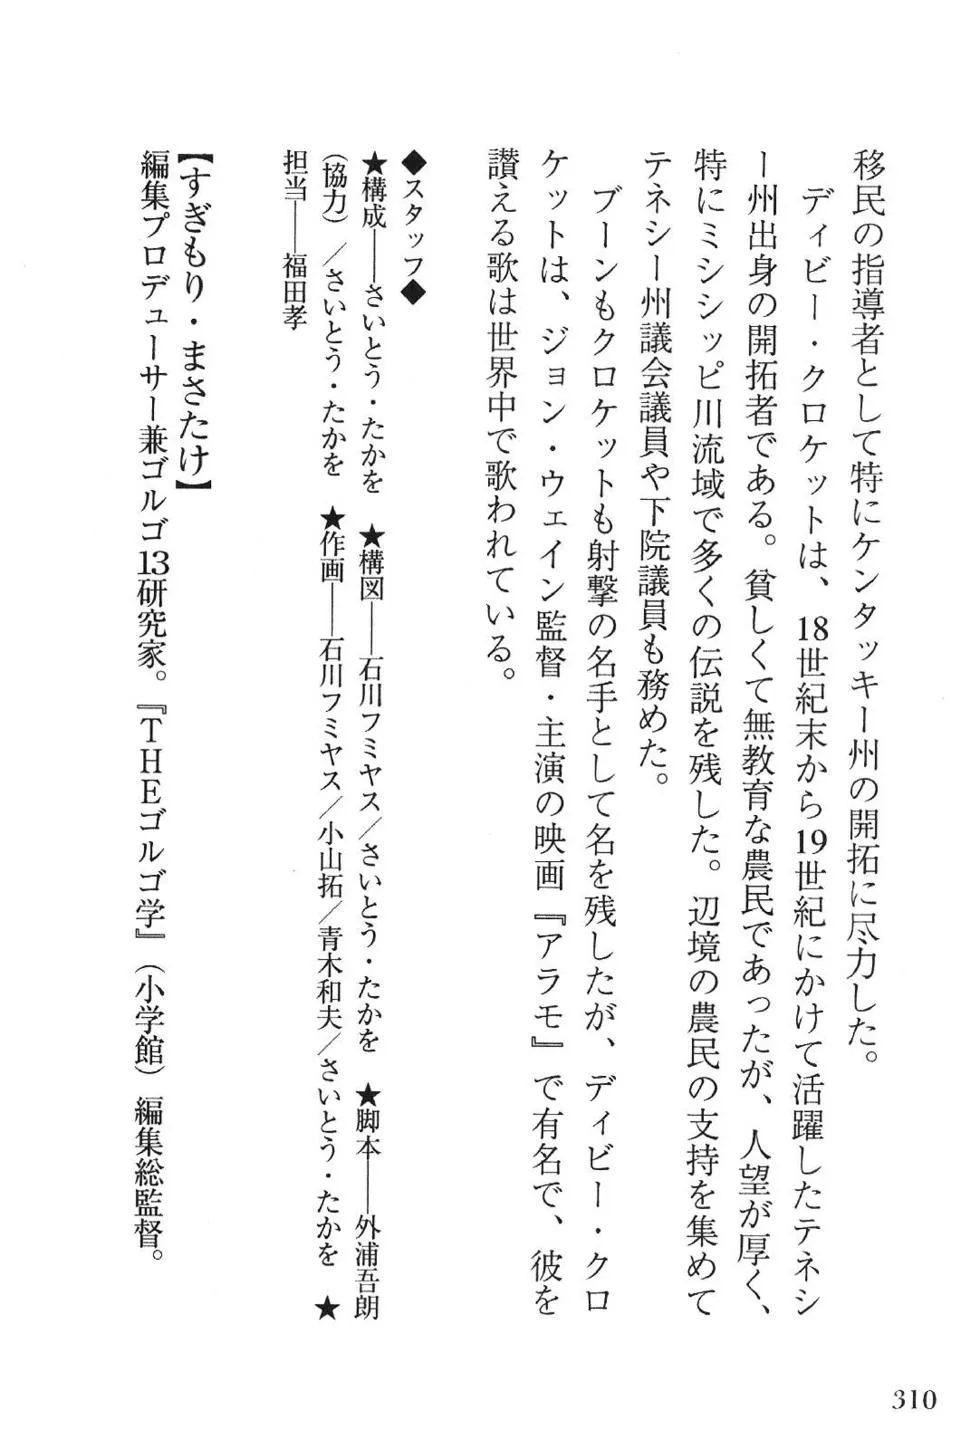 移民の指導者として特にケンタッキー州の開拓に尽力した。
ディビー・クロケットは、18世紀末から19世紀にかけて活躍したテネシ
ー州出身の開拓者である。貧しくて無教育な農民であったが、人望が厚く、
特にミシシッピ川流域で多くの伝説を残した。辺境の農民の支持を集めて
テネシー州議会議員や下院議員も務めた。
ブーンもクロケットも射撃の名手として名を残したが、ディビー・クロ
ケットは、ジョン・ウェイン監督・主演の映画『アラモ』で有名で、彼を
讃える歌は世界中で歌われている。
◆スタッフ◆
★構成――さいとう・たかを ★構図――石川フミヤス/さいとう・たかを ★脚本――外浦吾朗
(協力)/さいとう・たかを ★作画――石川フミヤス/小山拓/青木和夫/さいとう・たかを ★
担当――福田孝
【すぎもり・まさたけ】
編集プロデューサー兼ゴルゴ13研究家。『THEゴルゴ学』(小学館)編集総監督。
310